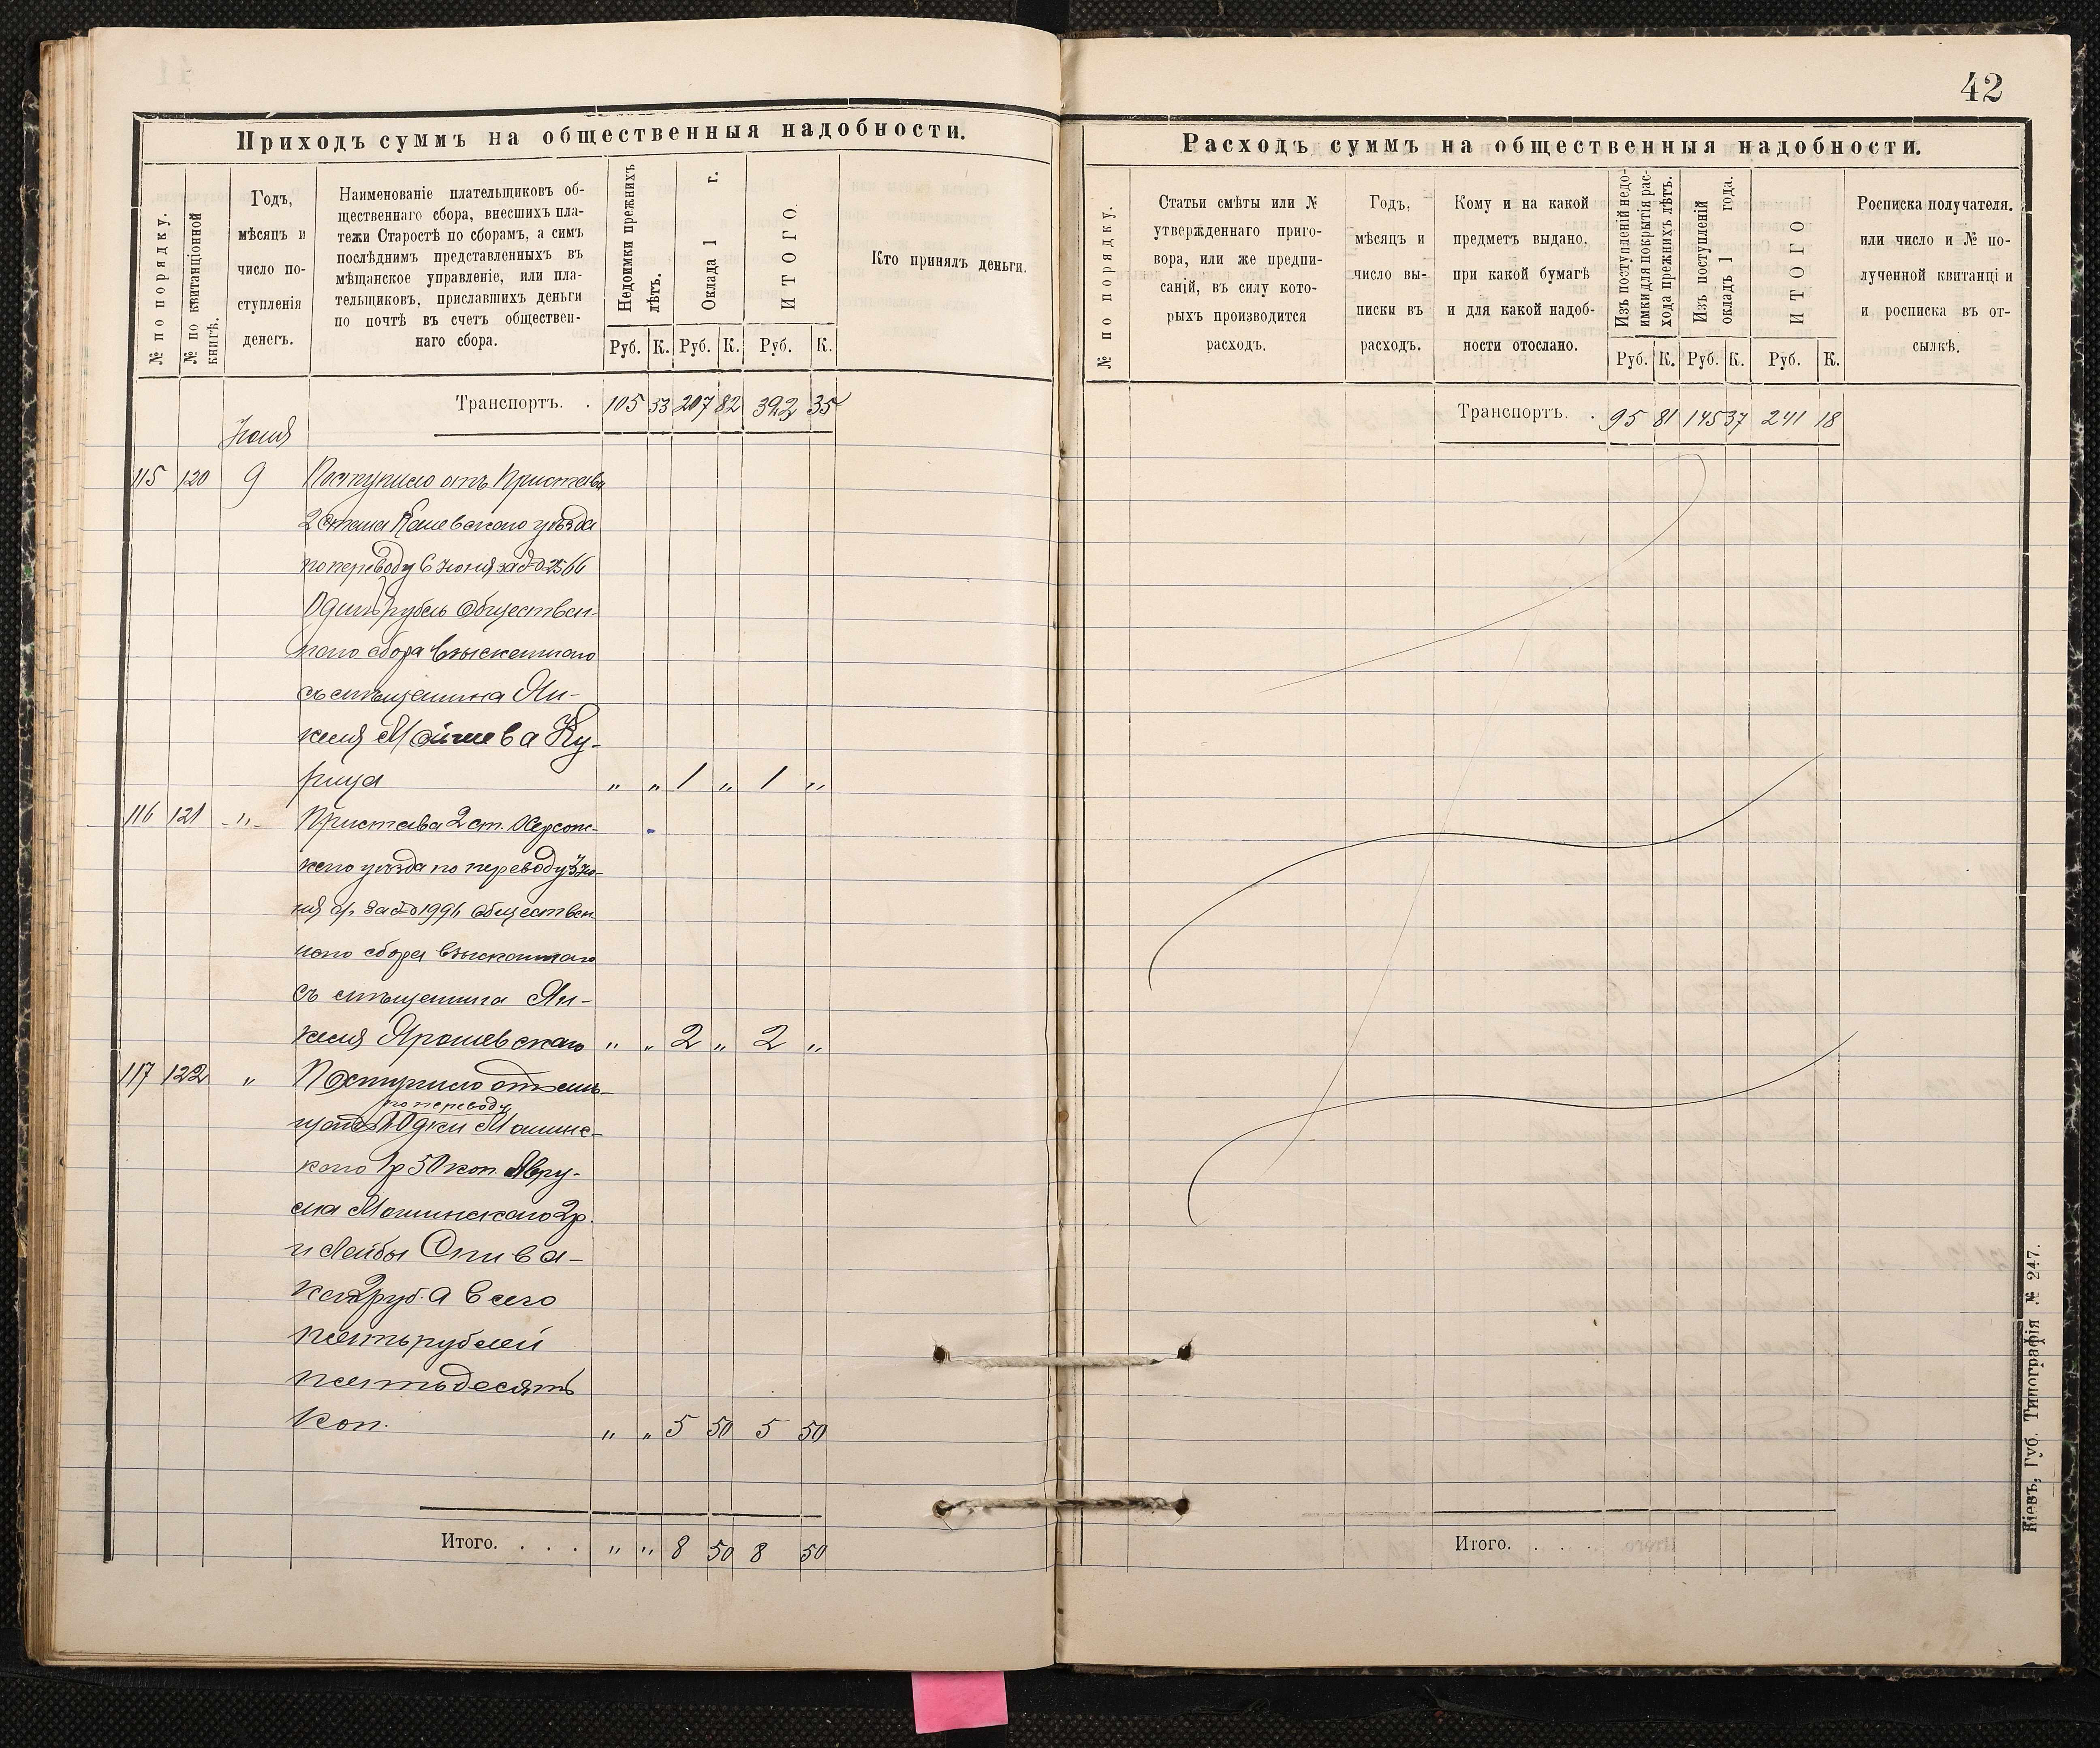 42
Приходъ суммъ на общественныя надобности.
№ по порядку.
№ по квитанціонной
книгѣ.
Годъ,
мѣсяцъ и
число по-
ступленія
денегъ.
Наименованіе плательщиковъ об-
щественнаго сбора, внесшихъ пла-
тежи Старостѣ по сборамъ, а симъ
послѣднимъ представленныхъ въ
мѣщанское управленіе, или пла-
тельщиковъ, приславшихъ деньги
по почтѣ въ счетъ обществен-
наго сбора.
Недоимки прежнихъ
лѣтъ.
Оклада 1 г.
ИТОГО.
Руб. К. Руб. К. Руб. К.
Кто принялъ деньги.
Транспортъ. . 105 53 207 82 392 35
Іюня
115 120 9 Поступило отъ Пристава
2 стана уѣзда
по переводу 6 Іюня за № 2566
Одинъ рубль обществен-
наго сбора взысканнаго
съ мѣщанина Ян-
келя Мошева Ку-
рица " " 1 " 1 "
116 121 -"- Пристава 2 ст. Херсон-
скаго уѣзда по переводу 3 Iю-
ня за № 1996 обществен-
наго сбора взысканнаго
съ мѣщанина Ян-
келя Ярошевскаго " " 2 " 2 "
117 122 " Поступило отъ мѣ-
по переводу
щанъ Юдки Мошинс-
каго 1 р 50 коп. Авру-
ма Мошинскаго 2 р.
и Лейбы Спива-
ка 2 руб. а всего
пять рублей
пятьдесятъ
коп. " " 5 50 5 50
Итого. . . . " " 8 50 8 50
Расходъ суммъ на общественныя надобности.
№ по порядку.
Статьи смѣты или №
утвержденнаго приго-
вора, или же предпи-
саній, въ силу кото-
рыхъ производится
расходъ.
Годъ,
мѣсяцъ и
число вы-
писки въ
расходъ.
Кому и на какой
предметъ выдано,
при какой бумагѣ
и для какой надоб-
ности отослано.
Изъ поступленій недо-
имки для покрытія рас-
хода прежнихъ лѣтъ.
Изъ поступленій
окладъ 1 года.
ИТОГО
Руб. К. Руб. К. Руб. К.
Росписка получателя.
или число и № по-
лученной квитанці и
и росписка въ от-
сылкѣ.
Транспортъ. . 95 81 145 37 241 18
Итого. . . .
Кіевъ, Губ. Типографія № 247.